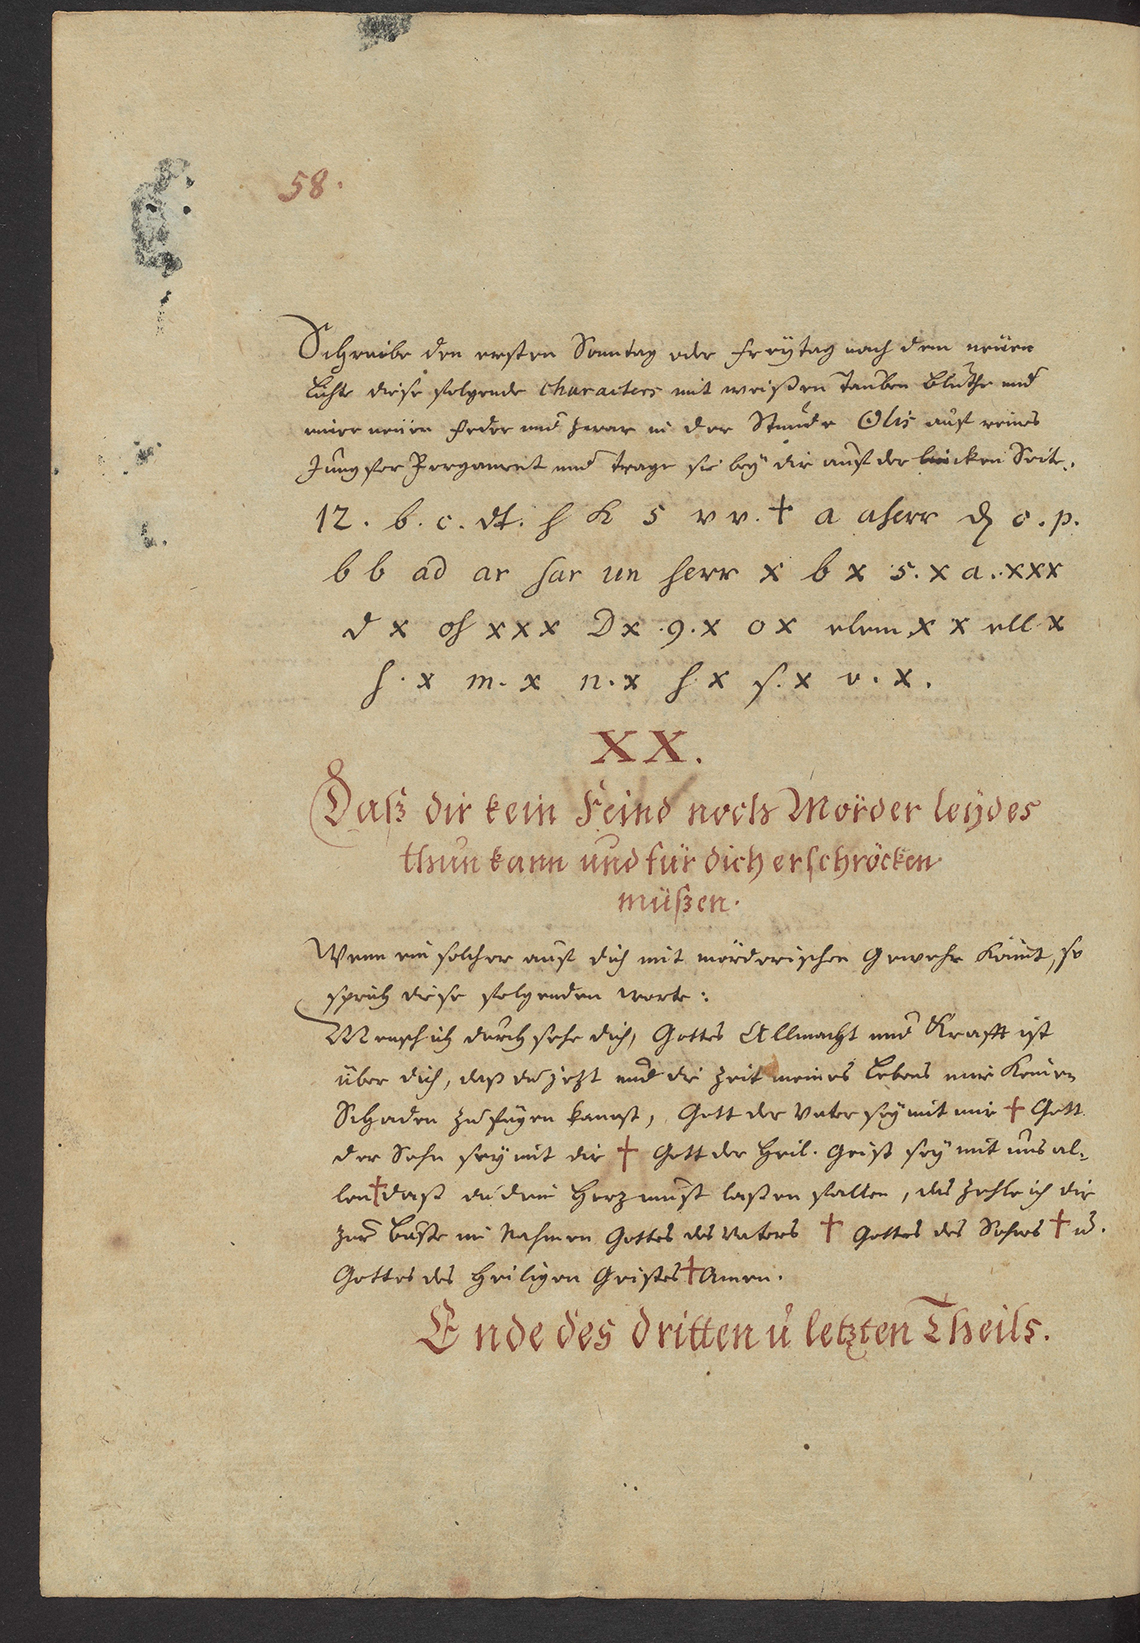 58.
Schreibe den ersten Sonntag oder Freÿtag nach dem neüen
Lichte diese folgende Characters mit weißen Tauben Bluthe und
einer neüen Feder und zwar in der Stunde Olis auf reines
Jungfer Pergament und trage sie beÿ dir auf der lincken Seite.
12. b. c. dt. h K 5 v v. † a aherr o. p.
b b ad ar har un herr x b x 5. x a. xxx
d x oh x x x D x .9. x o x elem x x ell x
h. x m. x n. x h x s. x v. x.
XX.
Daß dir kein Feind noch Mörder leÿdes
thun kann und für dich erschröcken
müßen.
Wenn ein solcher auf dich mit mörderischen Gewehr kömt, so
sprich diese folgenden worte:
Mensch ich durch sehe dich, Gottes Allmacht und Krafft ist
über dich, daß du jetzt und die Zeit meines Lebens mir keinen
Schaden zu fügen kanst, Gott der Vater seÿ mit mir † Gott
der Sohn seÿ mit dir † Gott der Heil. Geist seÿ mit uns al-
len † daß du dein Herz must laßen fallen, das zehle ich dir
zur Buße im Nahmen Gottes des Vaters † Gottes des Sohnes † u.
Gottes des Heiligen Geistes † Amen.
Ende des dritten u letzten Theils.